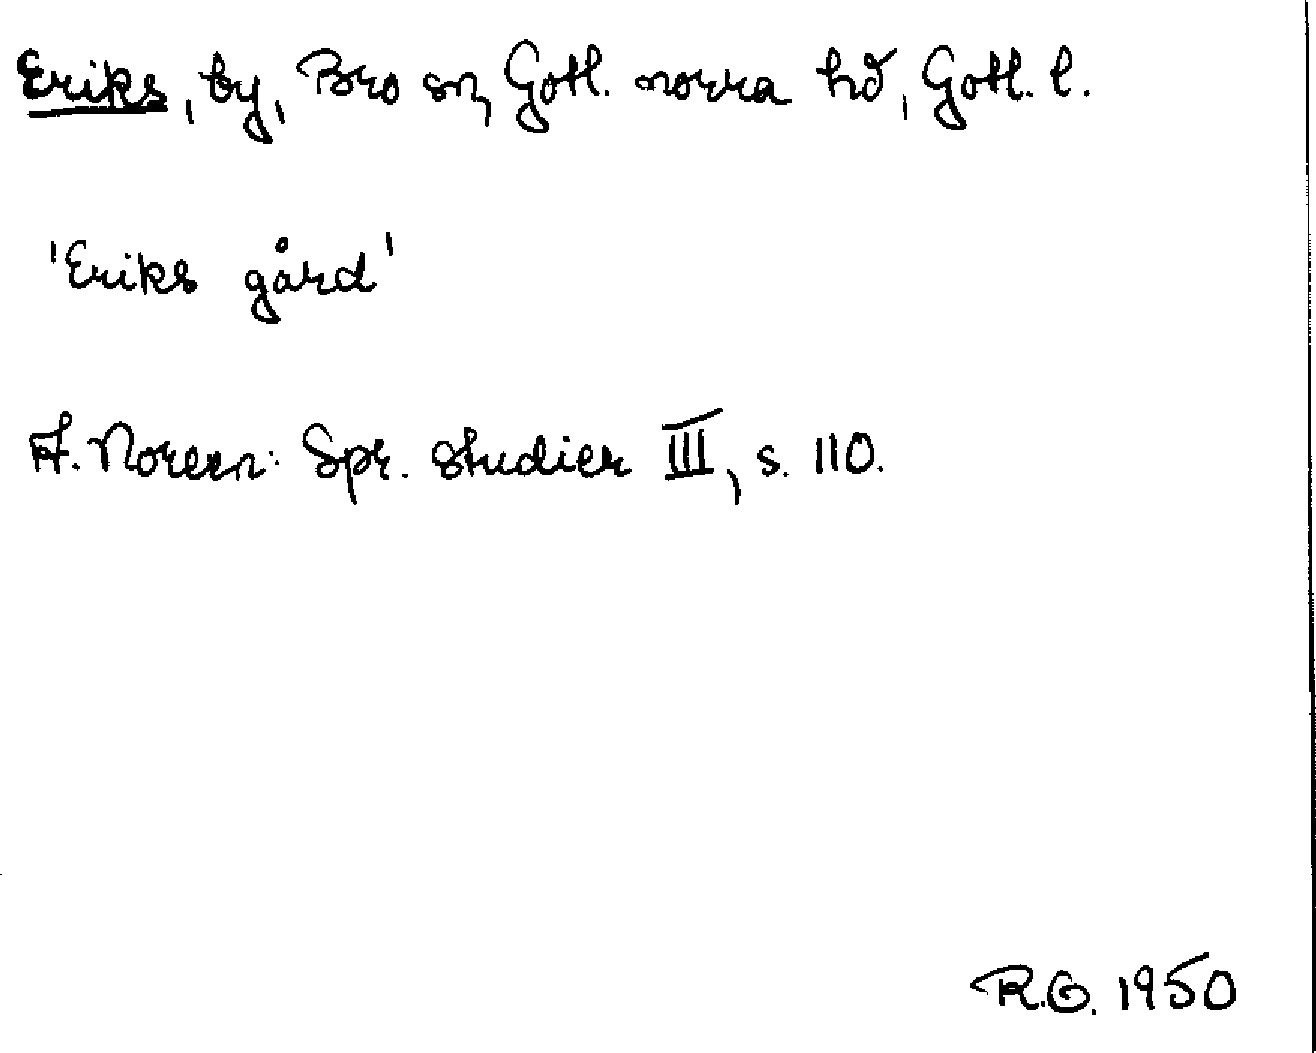 Eriks, by, Bro sn, Gotl. norra hd, Gotl. l.
'Eriks gård'
A. Noreen: Spr. studier III, s. 110.
R.G. 1950